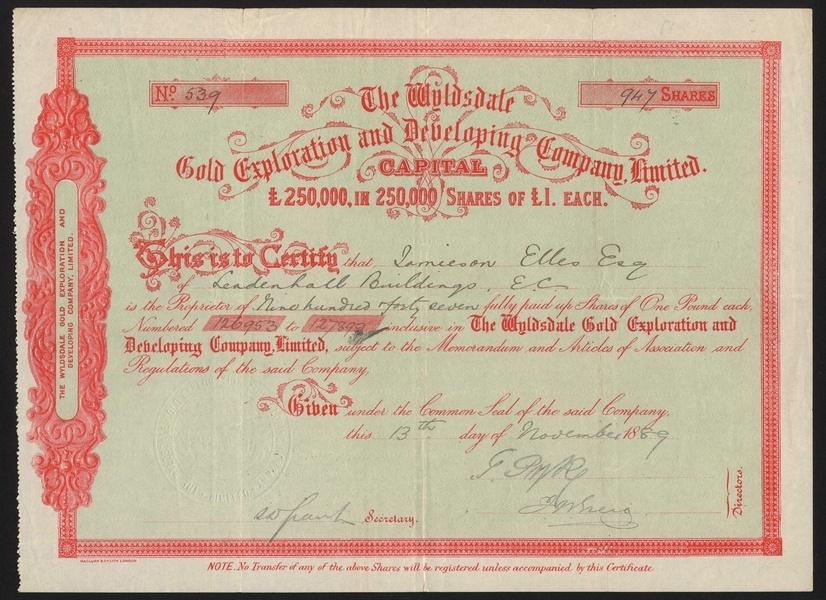 No. 539
947 SHARES
The Wyldsdale
Gold Exploration and Developing Company, Limited.
CAPITAL
£ 250,000, IN 250,000 SHARES OF £1. EACH.
This is to Certify that Jamieson Elles Esq
of Leadenhall Buildings, E.C.
is the Proprietor of Nine hundred & forty seven fully paid up Shares of One Pound each,
Numbered 126953 to inclusive in The Wyldsdale Gold Exploration and
Developing Company, Limited, subject to the Memorandum and Articles of Association and
Regulations of the said Company,
Given under the Common Seal of the said Company,
this 13th day of November 1889
Directors.
Secretary.
THE WYLDSDALE GOLD EXPLORATION AND
DEVELOPING COMPANY, LIMITED.
NOTE. No Transfer of any of the above Shares will be registered unless accompanied by this Certificate